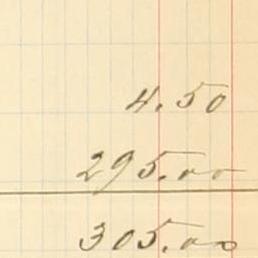 4.50
295.00
305.00